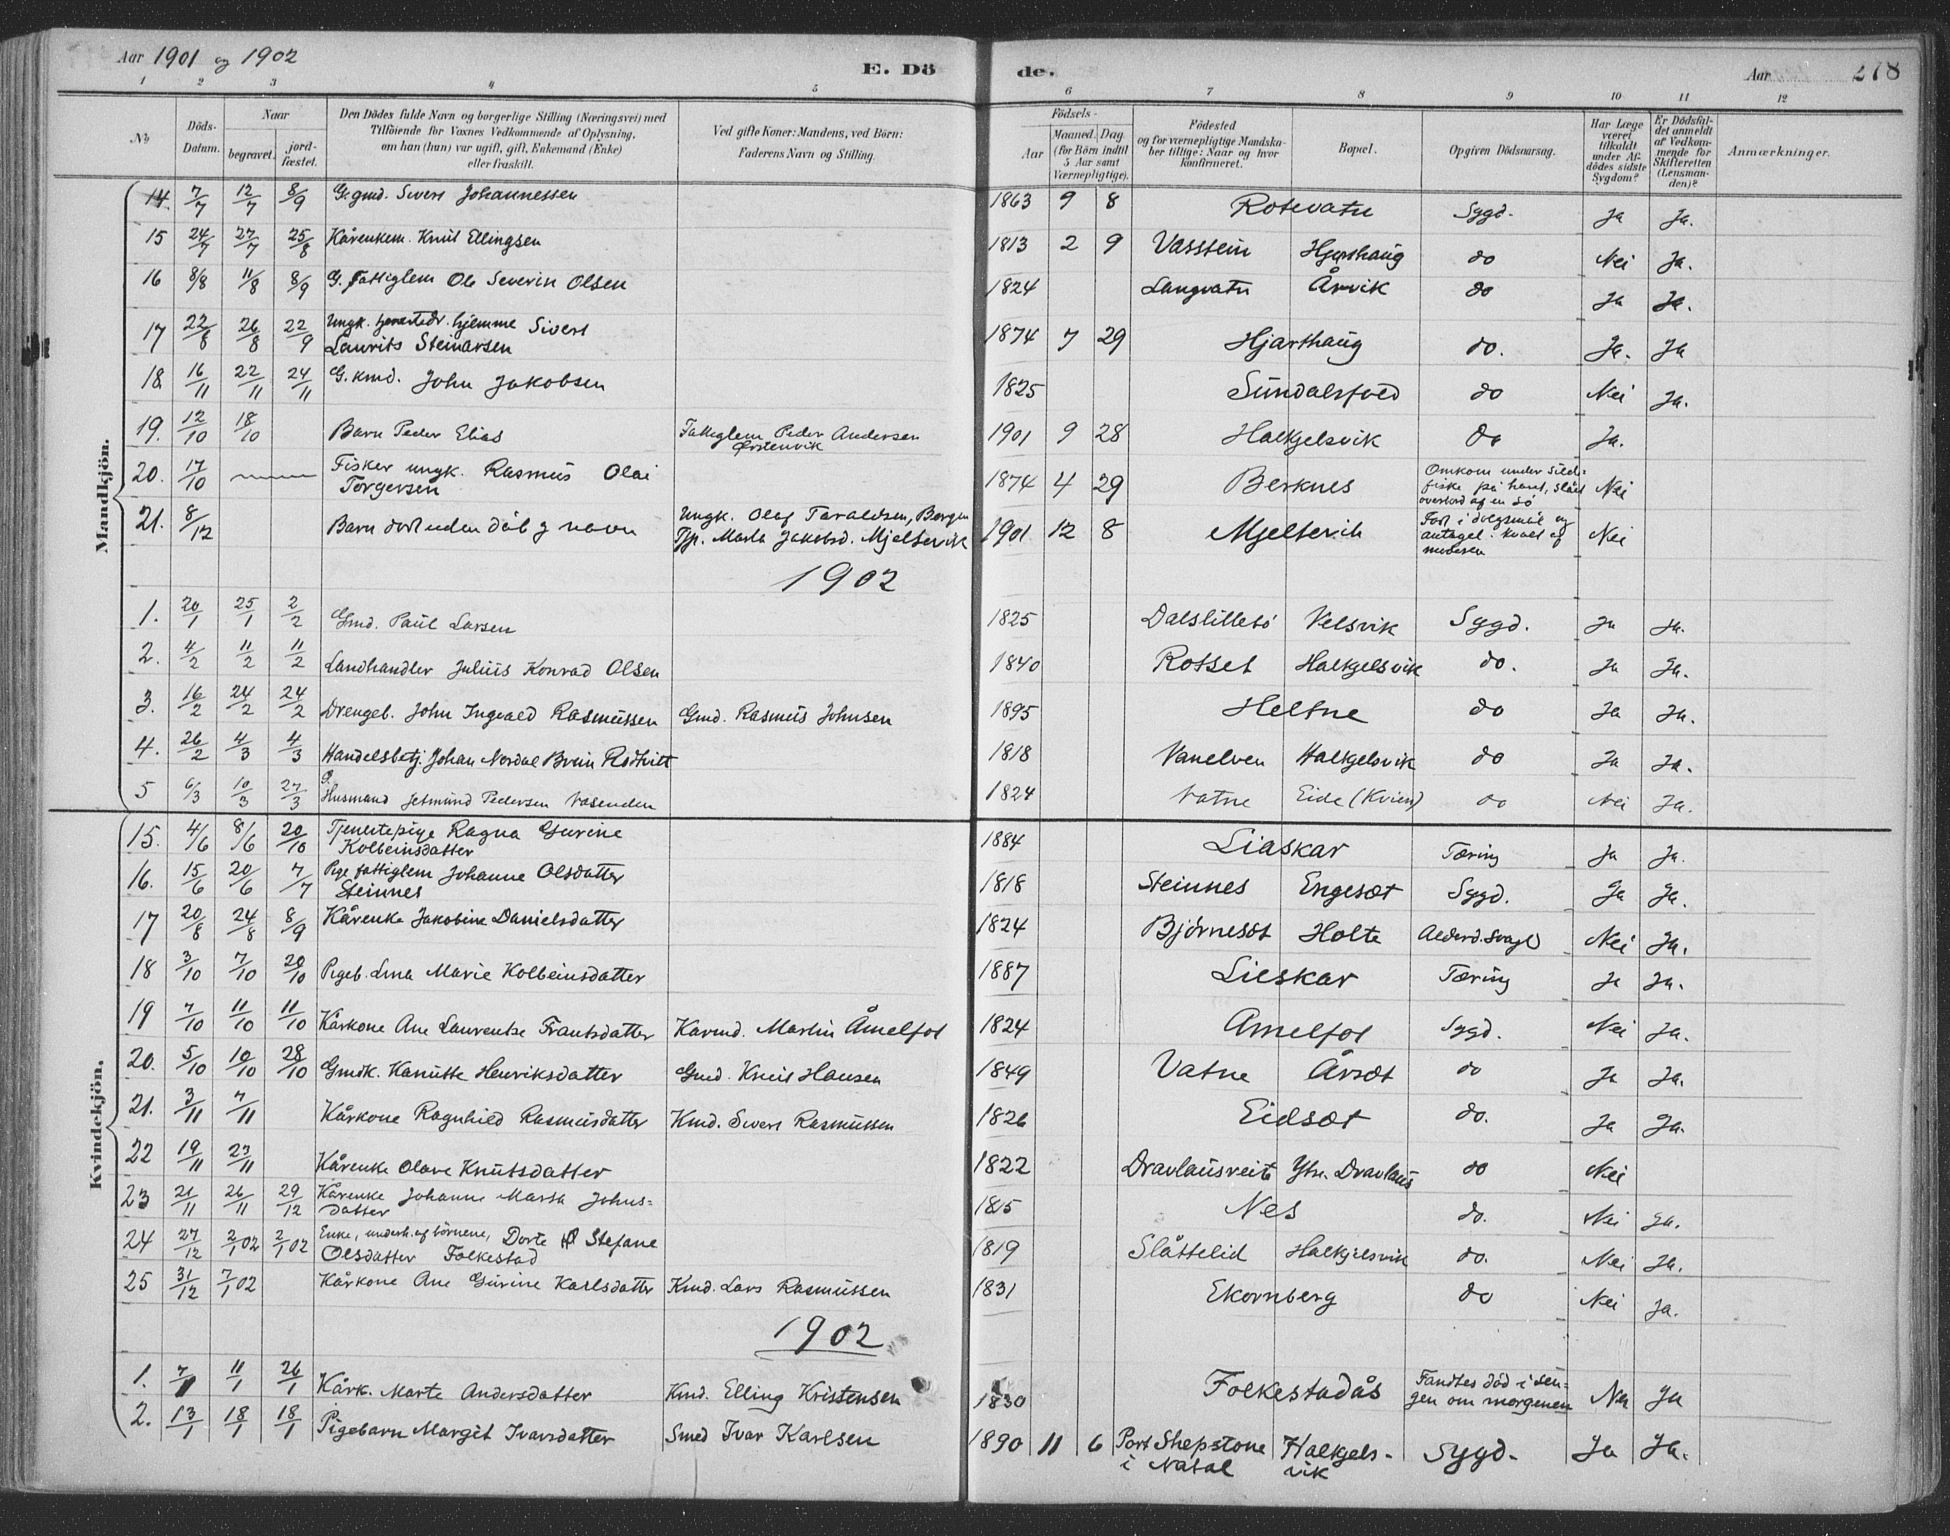 Aar 1901 og 1902
E. Dö de.
Aar 278
1 2 3 4 5 6 7 8 9 10 11 12
No
Döds-Datum.
Naar
begravet.
jord-fæstet.
Den Dödes fulde Navn og borgerlige Stilling (Næringsvei) med
Tilföiende for Voxnes Vedkommende af Oplysning,
om han (hun) var ugift, gift, Enkemand (Enke)
eller fraskilt.
Ved gifte Koner: Mandens, ved Börn:
Faderens Navn og Stilling.
Födsels-
Aar
Maaned. Dag
(for Börn indtil
5 Aar samt
Værnepligtige).
Födested
og for værnepligtige Mandska-
ber tillige: Naar og hvor
konfirmeret.
Bopæl.
Opgiven Dödsaarsag.
Har Læge
været
tilkaldt
under Af-
dödes sidste
Sygdom?
Er Dödsfal-
det anmeldt
af Vedkom-
mende for
Skifteretten
(Lensman-
den)?
Anmærkninger.
Mandkjön.
14. 7/7 12/7 8/9 G. gmd. Sivert Johannessen 1863 9 8 Rotevatn Sygd. Ja Ja.
15 24/7 27/7 25/8 Kårenkem. Knut Ellingsen 1813 2 9 Vasstein Hjorthaug do Nei Ja.
16 8/8 11/8 8/9 G. fattiglem Ole Severin Olsen 1824 Langvatn Årvik do Ja Ja.
17 22/8 26/8 22/9 Ungk. hjemme Sivert
Laurits Steinarsen 1874 7 29 Hjarthaug do. Ja. Ja
18. 16/11 22/11 24/11 G. kmd. John Jakobsen 1825 Sundalsfoed do Nei Ja.
19. 12/10 18/10 Barn Peder Elias Fattiglem Peder Andersen
Ørstenvik 1901 9 28 Halkjelsvik do Ja.
20. 17/10 Fisker ungk. Rasmus Olai
Torgersen 1874 4 29 Berknes Omkom under silde-
fiske på havet, slået
overbord af en sö Nei
21. 8/12 Barn dödt uden dåb og navn Ungk. Olaf Taraldsen, Bergen
Pp. Marta Jakobsd. Mjeltevik 1901 12 8 Mjeltevik Föd i dølgsmål og
antagel. kvalt af
moderen Nei
1902
1. 20/1 25/1 2/2 Gmd. Paul Larsen 1825 Dalslillebö Velsvik Sygd. Ja Ja.
2. 4/2 11/2 11/2 Landhandler Julius Konrad Olsen 1840 Rotset Halkjelsvik do. Ja Ja.
3. 16/2 24/2 24/2 Drengeb. John Ingvald Rasmussen Gmd. Rasmus Johnsen 1895 Heltne do Ja Ja.
4. 26/2 4/3 4/3 Handelsbetj. Johan Nordal Brun Rodtvitt 1818 Vanelven Halkjelsvik do Ja Ja.
5 6/3 10/3 27/3 G. Husmand Jetmund Pedersen Vasenden 1824 Vatne Eide (Kvien) do Nei Ja.
Kvindekjön.
15. 4/6 8/6 20/10 Tjenestepige Ragna Gurine
Kolbeinsdatter 1884 Liaskar Tæring Ja Ja.
16. 15/6 20/6 7/7 Pige fattiglem Johanne Olsdatter
Steinnes 1818 Steinnes Engesæt Sygd. Ja Ja.
17 20/8 24/8 8/9 Kårenke Jakobine Danielsdatter 1824 Björnesæt Holte Alderd. svagh. Nei Ja.
18 3/10 7/10 20/10 Pigeb. Lina Marie Kolbeinsdatter 1887 Lieskar Tæring Ja Ja.
19 7/10 11/10 11/10 Kårkone Ane Laurentse Frantsdatter Karmd. Martin Åmelfot 1824 Åmelfot Sygd. Nei Ja.
20. 5/10 10/10 28/10 Gmdk. Kanutte Henriksdatter Gmd. Knut Hansen 1849 Vatne Årset do Ja Ja.
21. 3/11 7/11 Kårkone Ragnhild Rasmusdatter Kmd. Sivert Rasmussen 1826 Eidsæt do. Ja Ja.
22 19/11 23/11 Kårenke Olave Knutsdatter 1822 Dravlausreit Ytr. Dravlaus do Nei
23 21/11 26/11 29/12 Kårenke Johanne Marta Johns-
datter 1815 Nes do. Nei Ja.
24 27/12 2/1 02 2/1 02 Enke, underh. af börnene, Dorte Stefane
Olsdatter Folkestad 1819 Slåttelid Halkjelsvik do. Nei Ja.
25 31/12 7/1 02 Kårkone Ane Gurine Karlsdatter Kmd. Lars Rasmussen 1831 Ekornberg do Nei Ja.
1902
1. 7/1 11/1 26/1 Kårk. Marte Andersdatter Kmd. Elling Kristensen 1830 Folkestadås Fandtes död i sen-
gen om morgenen Nei Ja
2. 13/1 18/1 18/1 Pigebarn Margit Ivarsdatter Smed Ivar Karlsen 1890 11 6 Port Shepstone
i Natal Halkjels-
vik Sygd. Ja Ja.